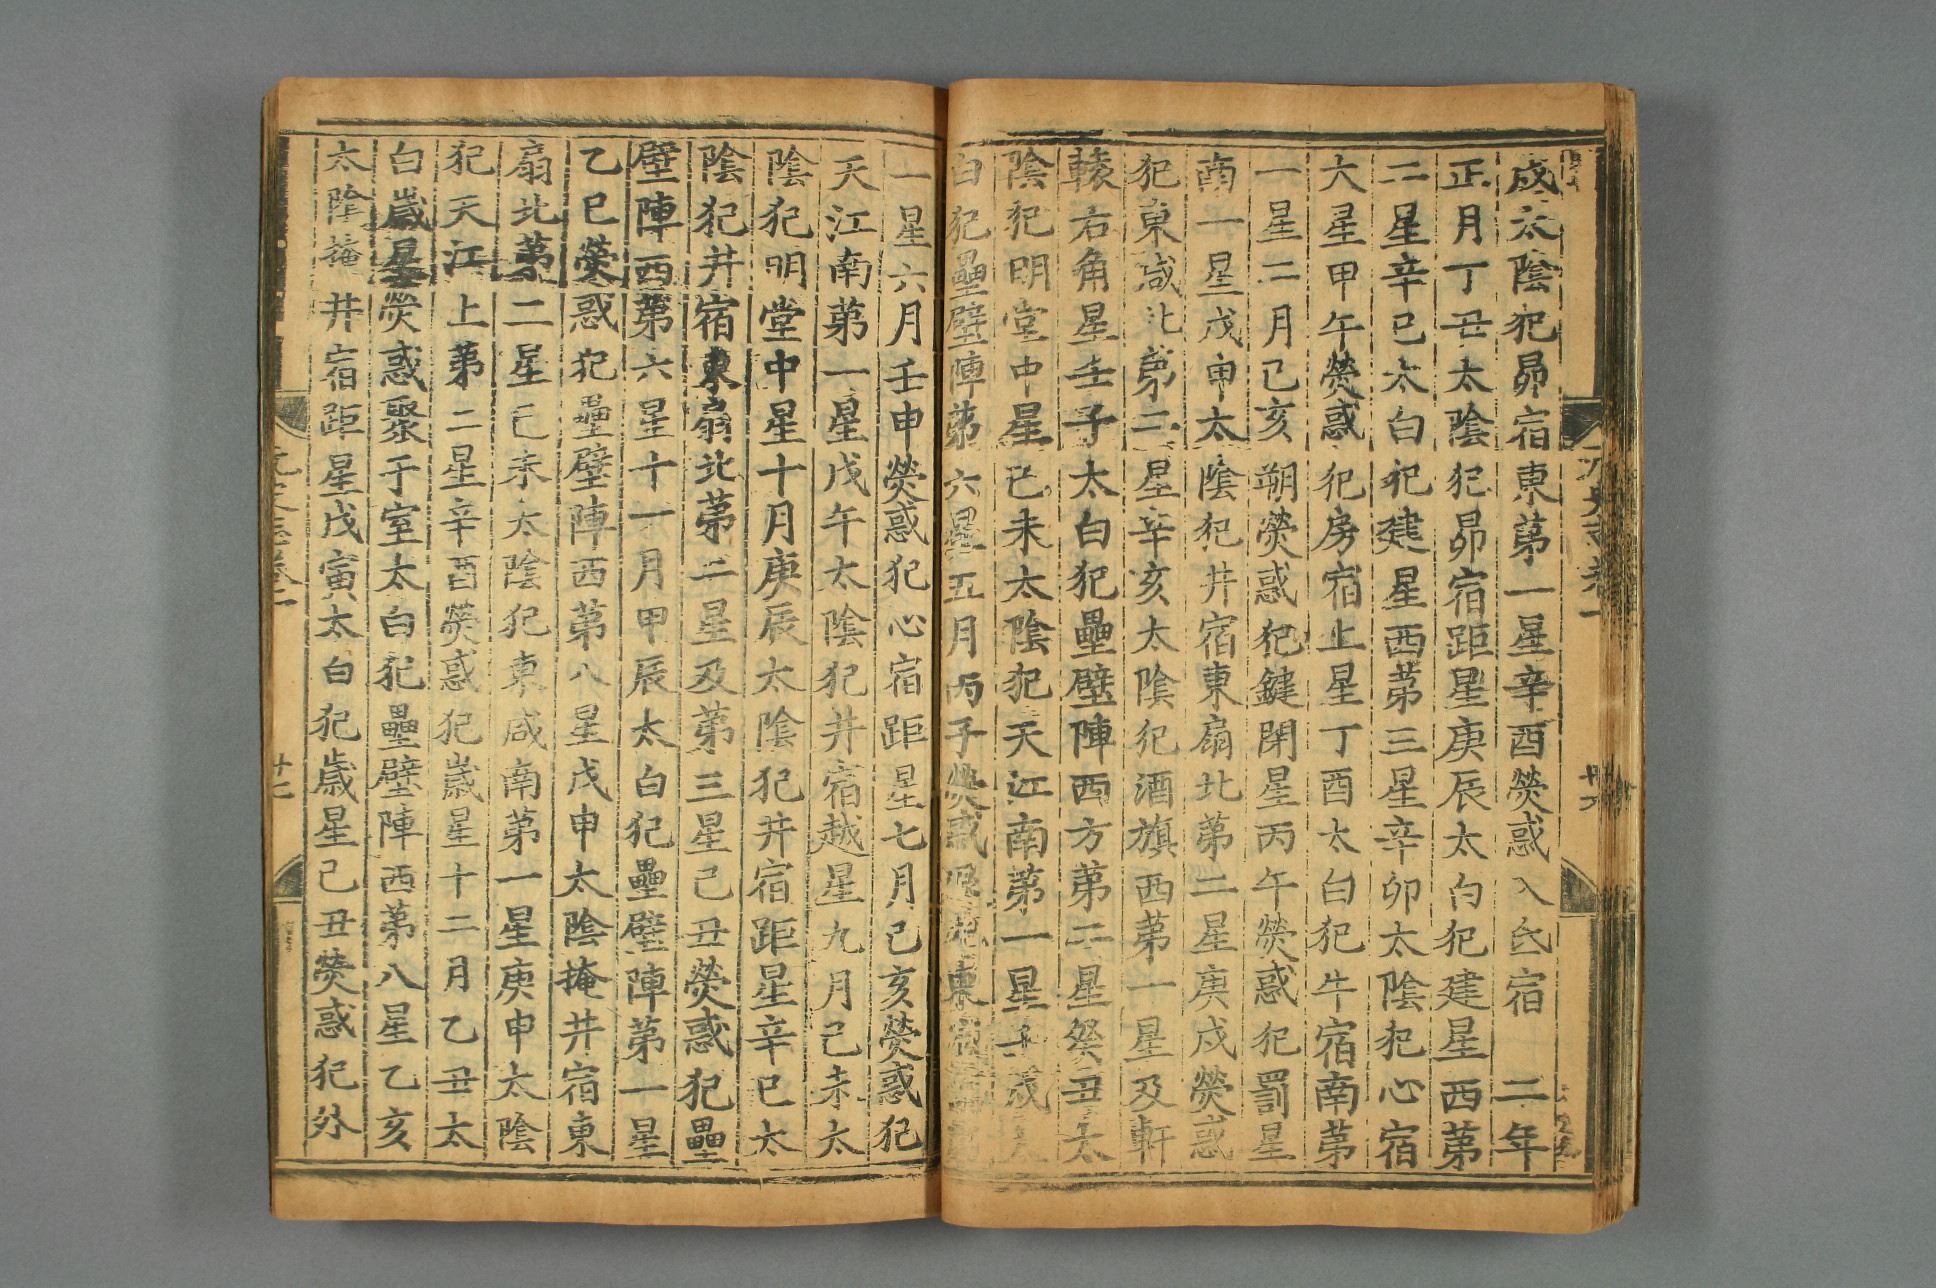 戌太陰犯昴宿東第一星辛酉熒惑入氐宿　二年
正月丁丑太陰犯昴宿距星庚辰太白犯建星西第
二星辛巳太白犯建星西第三星辛卯太陰犯心宿
大星甲午熒惑犯房宿上星丁酉太白犯牛宿南第
一星二月己亥朔熒惑犯鍵閉星丙午熒惑犯罰星
南一星戊申太陰犯井宿東扇北第二星庚戌熒惑
犯東咸北第二星辛亥太陰犯酒旗西第一星及軒
轅右角星壬子太白犯壘壁陣西方第二星癸丑太
陰犯明堂中星己未太陰犯天江南第一星
白犯壘壁陣第六星五月丙子熒惑退犯東
一星六月壬申熒惑犯心宿距星七月己亥熒惑犯
天江南第一星戊午太陰犯井宿越星九月己未太
陰犯明堂中星十月庚辰太陰犯井宿距星辛巳太
陰犯井宿東扇北第二星及第三星己丑熒惑犯壘
壁陣西第六星十一月甲辰太白犯壘壁陣第一星
乙巳熒惑犯壘壁陣西第八星戊申太陰掩井宿東
扇北第二星己未太陰犯東咸南第一星庚申太陰
犯天江上第二星辛酉熒惑犯歲星十二月乙丑太
白歲星熒惑聚于室太白犯壘壁陣西第八星乙亥
太陰掩井宿距星戊寅太白犯歲星己丑熒惑犯外